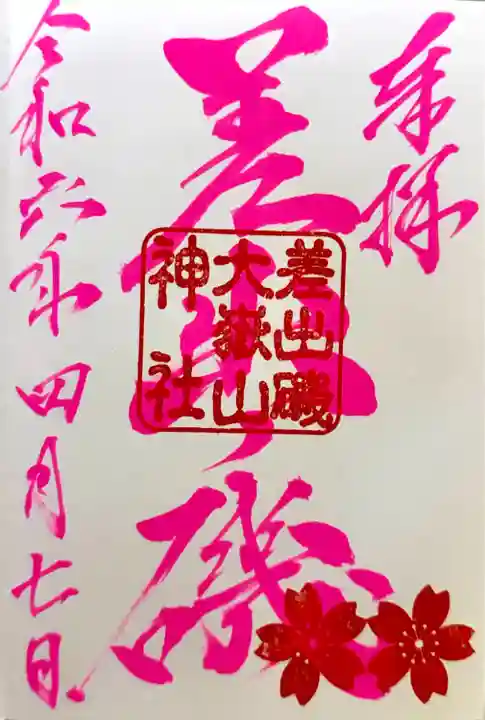 奉拝
差出磯
差出磯
大嶽山
神社
令和六年四月七日